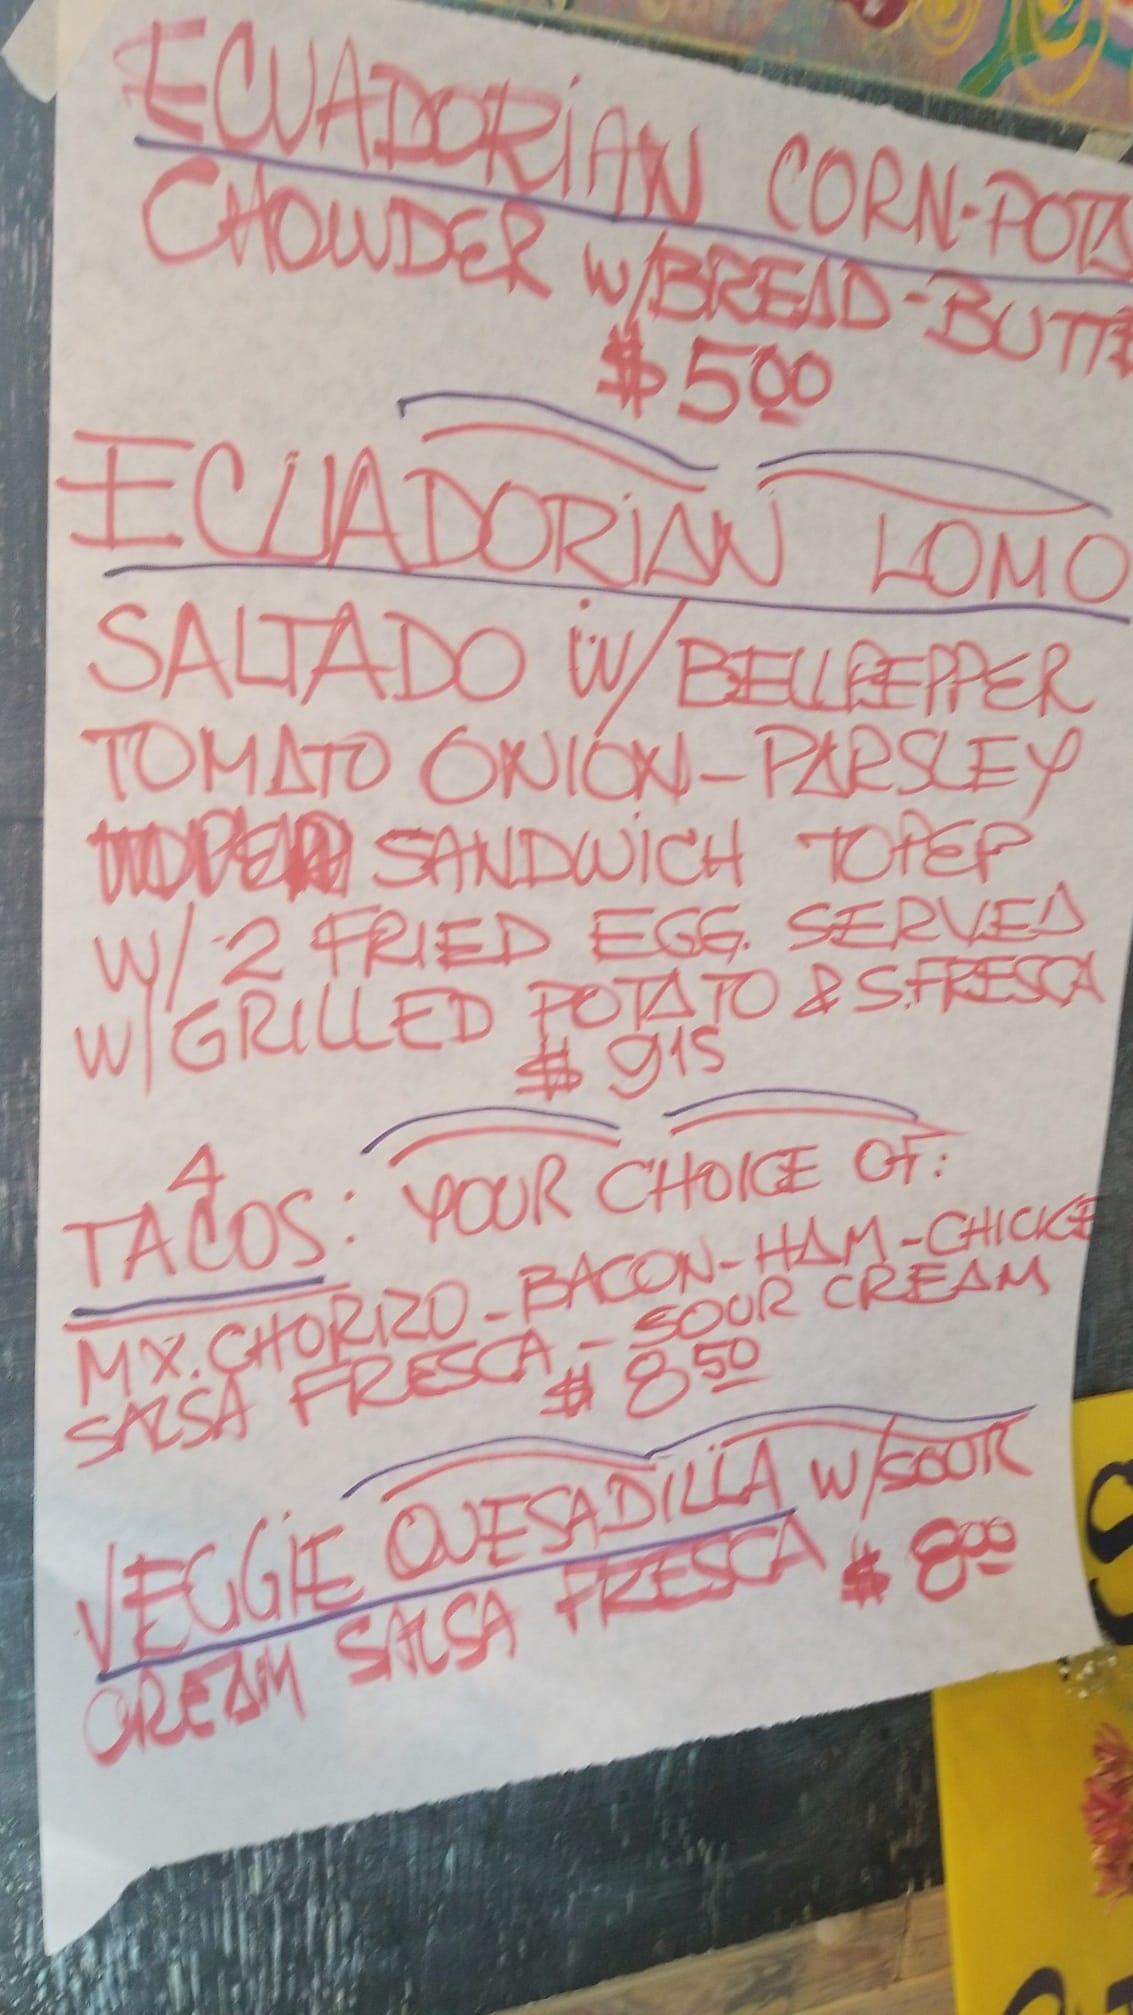 ECUADORIAN CORN-POTA
CHOWDER W/BREAD-BUTTE
$5.00
ECUADORIAN LOMO
SALTADO W/BELLPEPPER
TOMATO ONION-PARSLEY
SANDWICH TOPEP
W/ 2 FRIED EGG. SERVED
W/GRILLED POTATO & S.FRESCA
$ 915
4
TACOS: YOUR CHOICE OF:
MX.CHORIZO-BACON-HAM-CHICKE
SALSA FRESCA-SOUR CREAM
$ 8.50
VEGGIE QUESADILLA W/SOUR
CREAM SALSA FRESCA $ 8.00